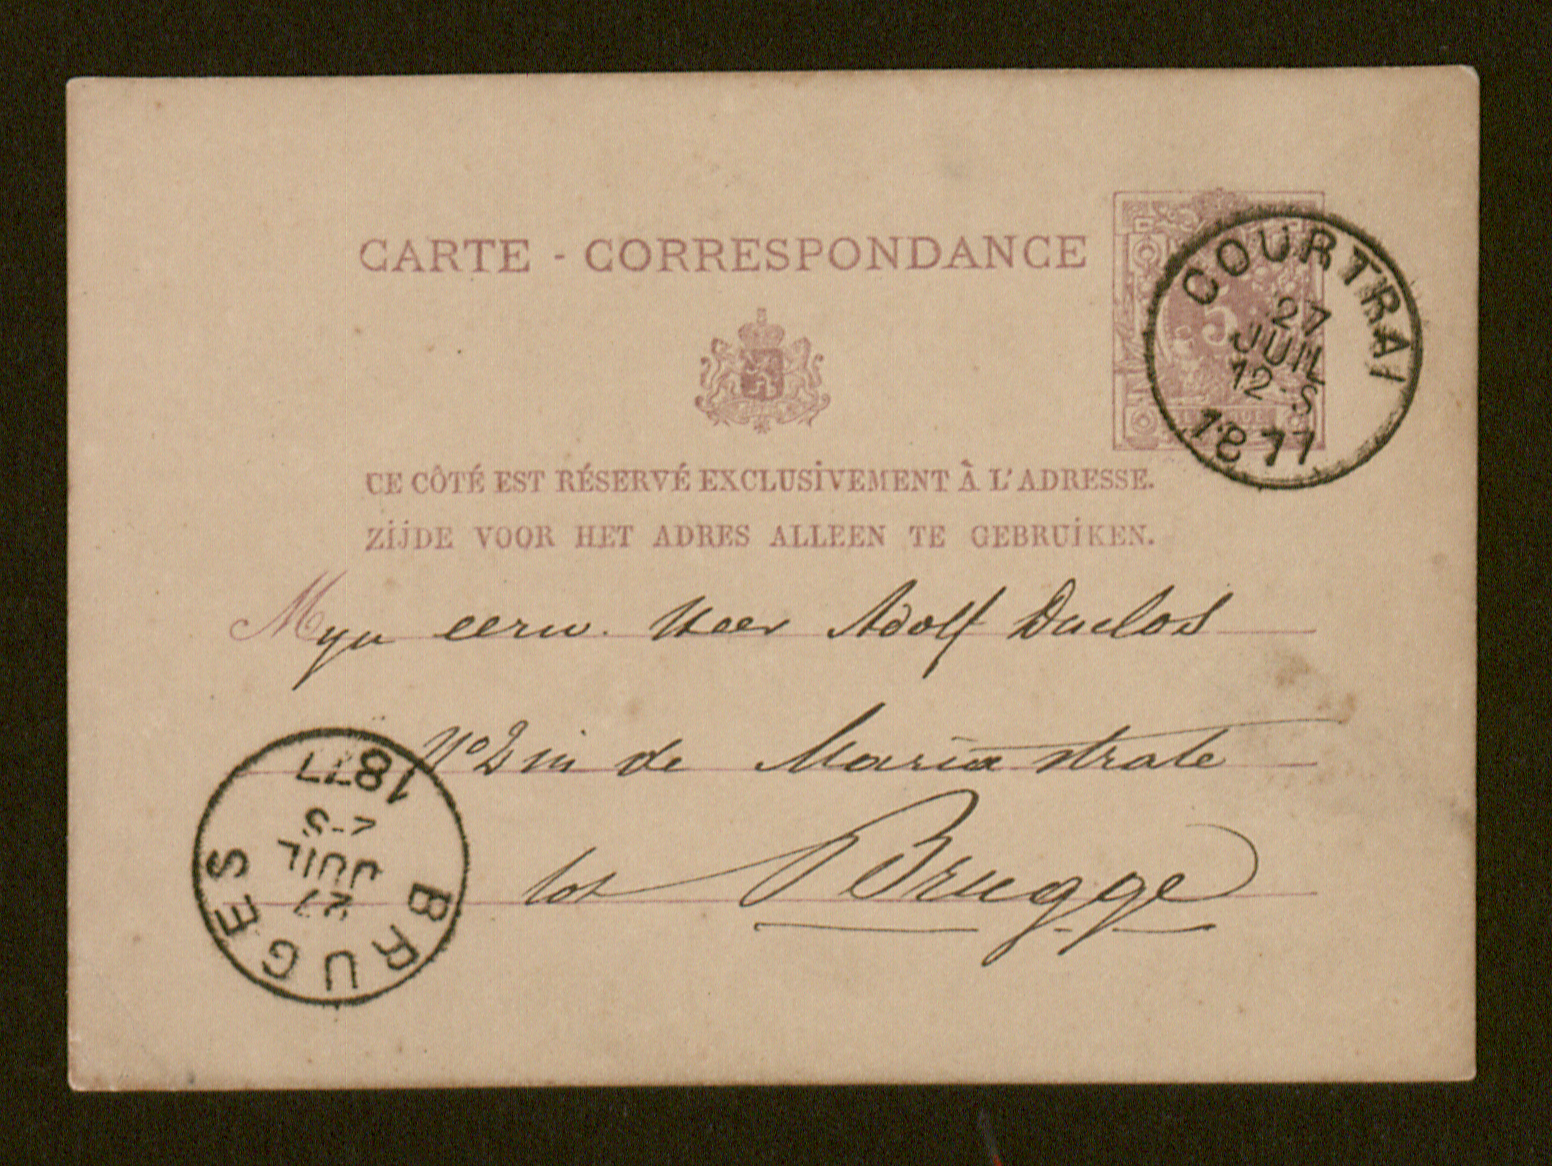 CARTE - CORRESPONDANCE
5
COURTRAI
27
JUIL
12-S
1877
CE CÔTÉ EST RÉSERVÉ EXCLUSIVEMENT À L'ADRESSE.
ZIJDE VOOR HET ADRES ALLEEN TE GEBRUIKEN.
Myn eerw. Heer Adolf Duclos
No 2 in de Maria strate
tot Brugge
BRUGES
27
JUIL
7-S
1877